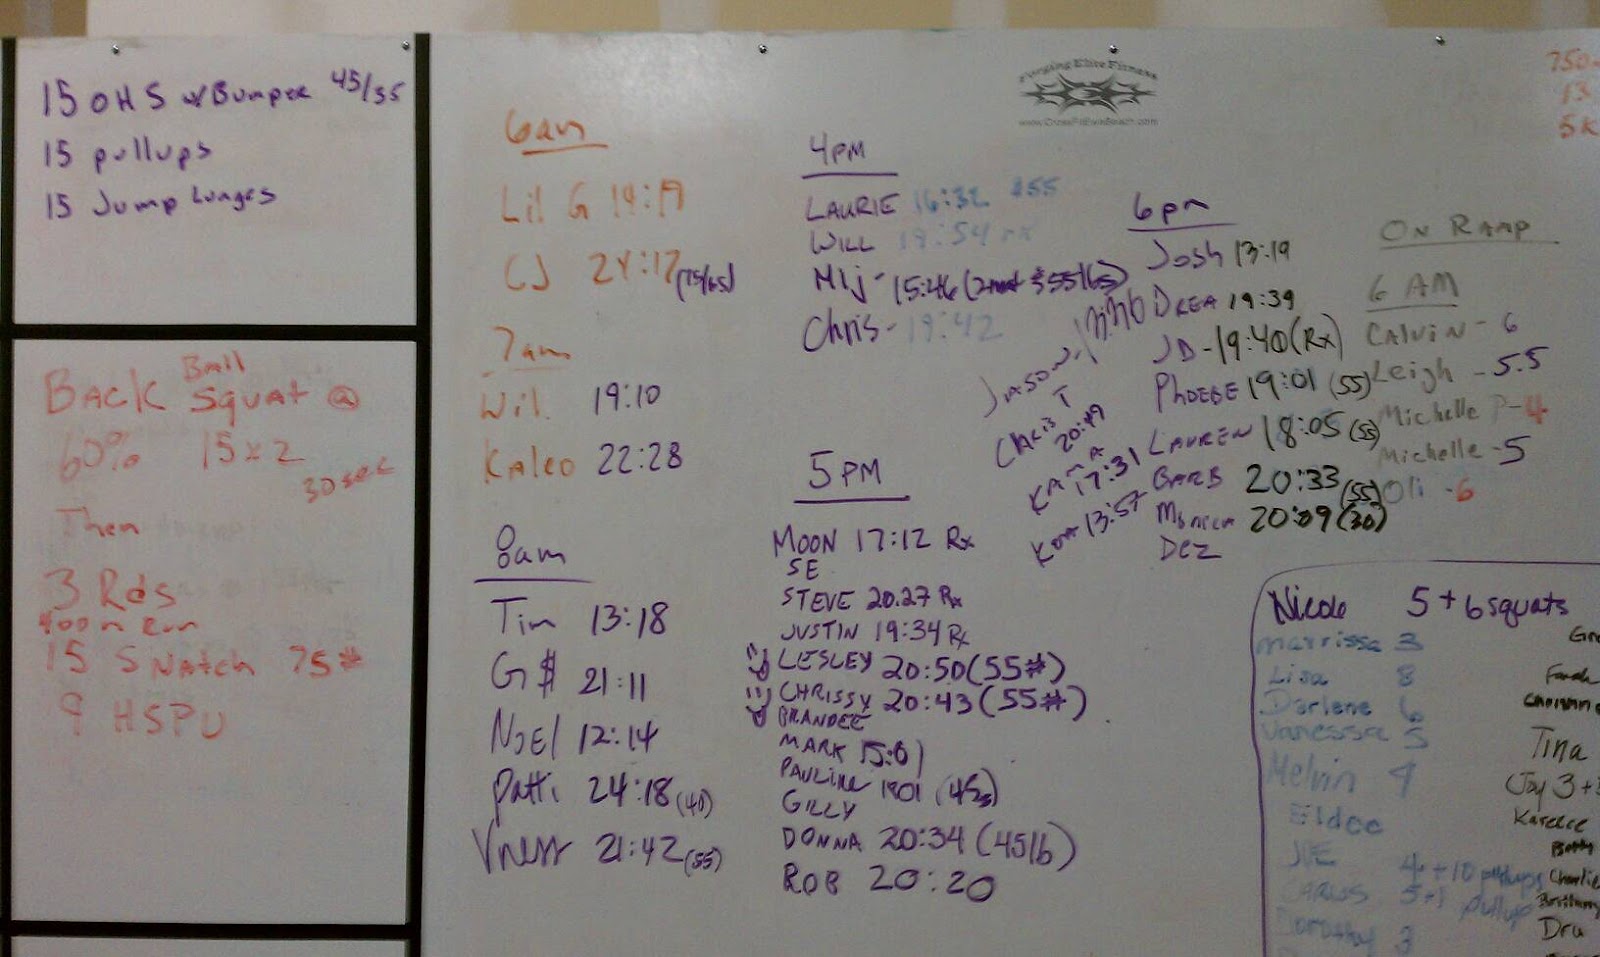 15 OHS w/Bumper 45/35
15 pullups
15 Jump Lunges
BACK Squat @
Ball
60% 15x2
30 sec
Then
3 Rds
400m Run
15 Snatch 75#
9 HSPU
Forging Elite Fitness
www.CrossFitEwaBeach.com
6am
Lil G 19:19
CJ 24:17 (75/65)
7am
Wil. 19:10
Kaleo 22:28
8am
Tim 13:18
G$ 21:11
NOEL 12:14
Patti 24:18 (40)
Vness 21:42 (55)
4PM
LAURIE 16:32 #55
WILL 19:54 rx
MIJ - 15:46
Chris - 19:42
5PM
MOON 17:12 Rx
SE
STEVE 20:27 Rx
JUSTIN 19:34 Rx
LESLEY 20:50 (55#)
CHRISSY 20:43 (55#)
BRANDEE
MARK 15:01
PAULINE
GILLY
DONNA 20:34 (45lb)
ROB 20:20
Jason
Chris T
20:49
KAMA
17:31
13:57
6pm
Josh 13:19
DREA 19:39
JD - 19:40 (Rx)
PHOEBE 19:01 (55)
LAUREN 18:05 (55)
BARB 20:33 (55)
Monica 20:09 (30)
DEZ
ON RAMP
6 AM
CALVIN - 6
Leigh - 5.5
Michelle P - 4
Michelle - 5
Oli - 6
750
13
5K
Nicole 5 + 6 squats
Marrissa 3
Lisa 8
Darlene 6
Vanessa 5
Melvin 4
Eldee
JOE 4 + 10 pullups
CARLOS 5+1 pullup
Dorothy 3
Tina
Jay 3 +
Karece
Betty
Charlie
Brittany
Dru